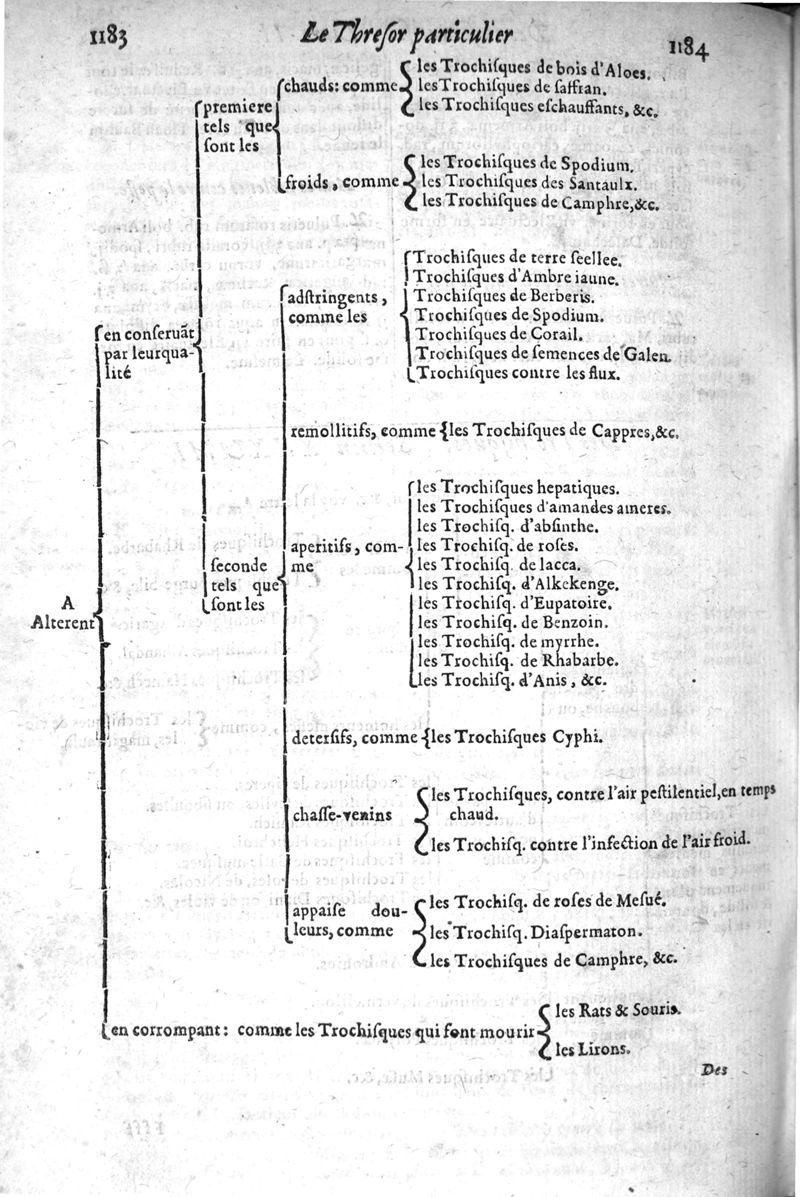 1183
Le Threſor particulier
1184
A
Alterent
en conſeruāt
par leurqua-
lité
premiere
tels que
ſont les
chauds: comme
les Trochiſques de bois d'Aloes.
les Trochiſques de ſaffran.
les Trochiſques eſchauffants, &c.
froids, comme
les Trochiſques de Spodium.
les Trochiſques des Santaulx.
les Trochiſques de Camphre, &c.
ſeconde
tels que
ſont les
adſtringents,
comme les
Trochiſques de terre ſeellee.
Trochiſques d'Ambre iaune.
Trochiſques de Berberis.
Trochiſques de Spodium.
Trochiſques de Corail.
Trochiſques de ſemences de Galen.
Trochiſques contre les flux.
remollitifs, comme {les Trochiſques de Cappres, &c.
aperitifs, com-
me
les Trochiſques hepatiques.
les Trochiſques d'amandes ameres.
les Trochiſq. d'abſinthe.
les Trochiſq. de roſes.
les Trochiſq. de lacca.
les Trochiſq. d'Alkekenge.
les Trochiſq. d'Eupatoire.
les Trochiſq. de Benzoin.
les Trochiſq. de myrrhe.
les Trochiſq. de Rhabarbe.
les Trochiſq. d'Anis, &c.
deterſifs, comme {les Trochiſques Cyphi.
chaſſe-venins
les Trochiſques, contre l'air peſtilentiel, en temps
chaud.
les Trochiſq. contre l'infection de l'air froid.
appaiſe dou-
leurs, comme
les Trochiſq. de roſes de Meſué.
les Trochiſq. Diaſpermaton.
les Trochiſques de Camphre, &c.
en corrompant: comme les Trochiſques qui font mourir
les Rats & Souris.
les Lirons.
Des